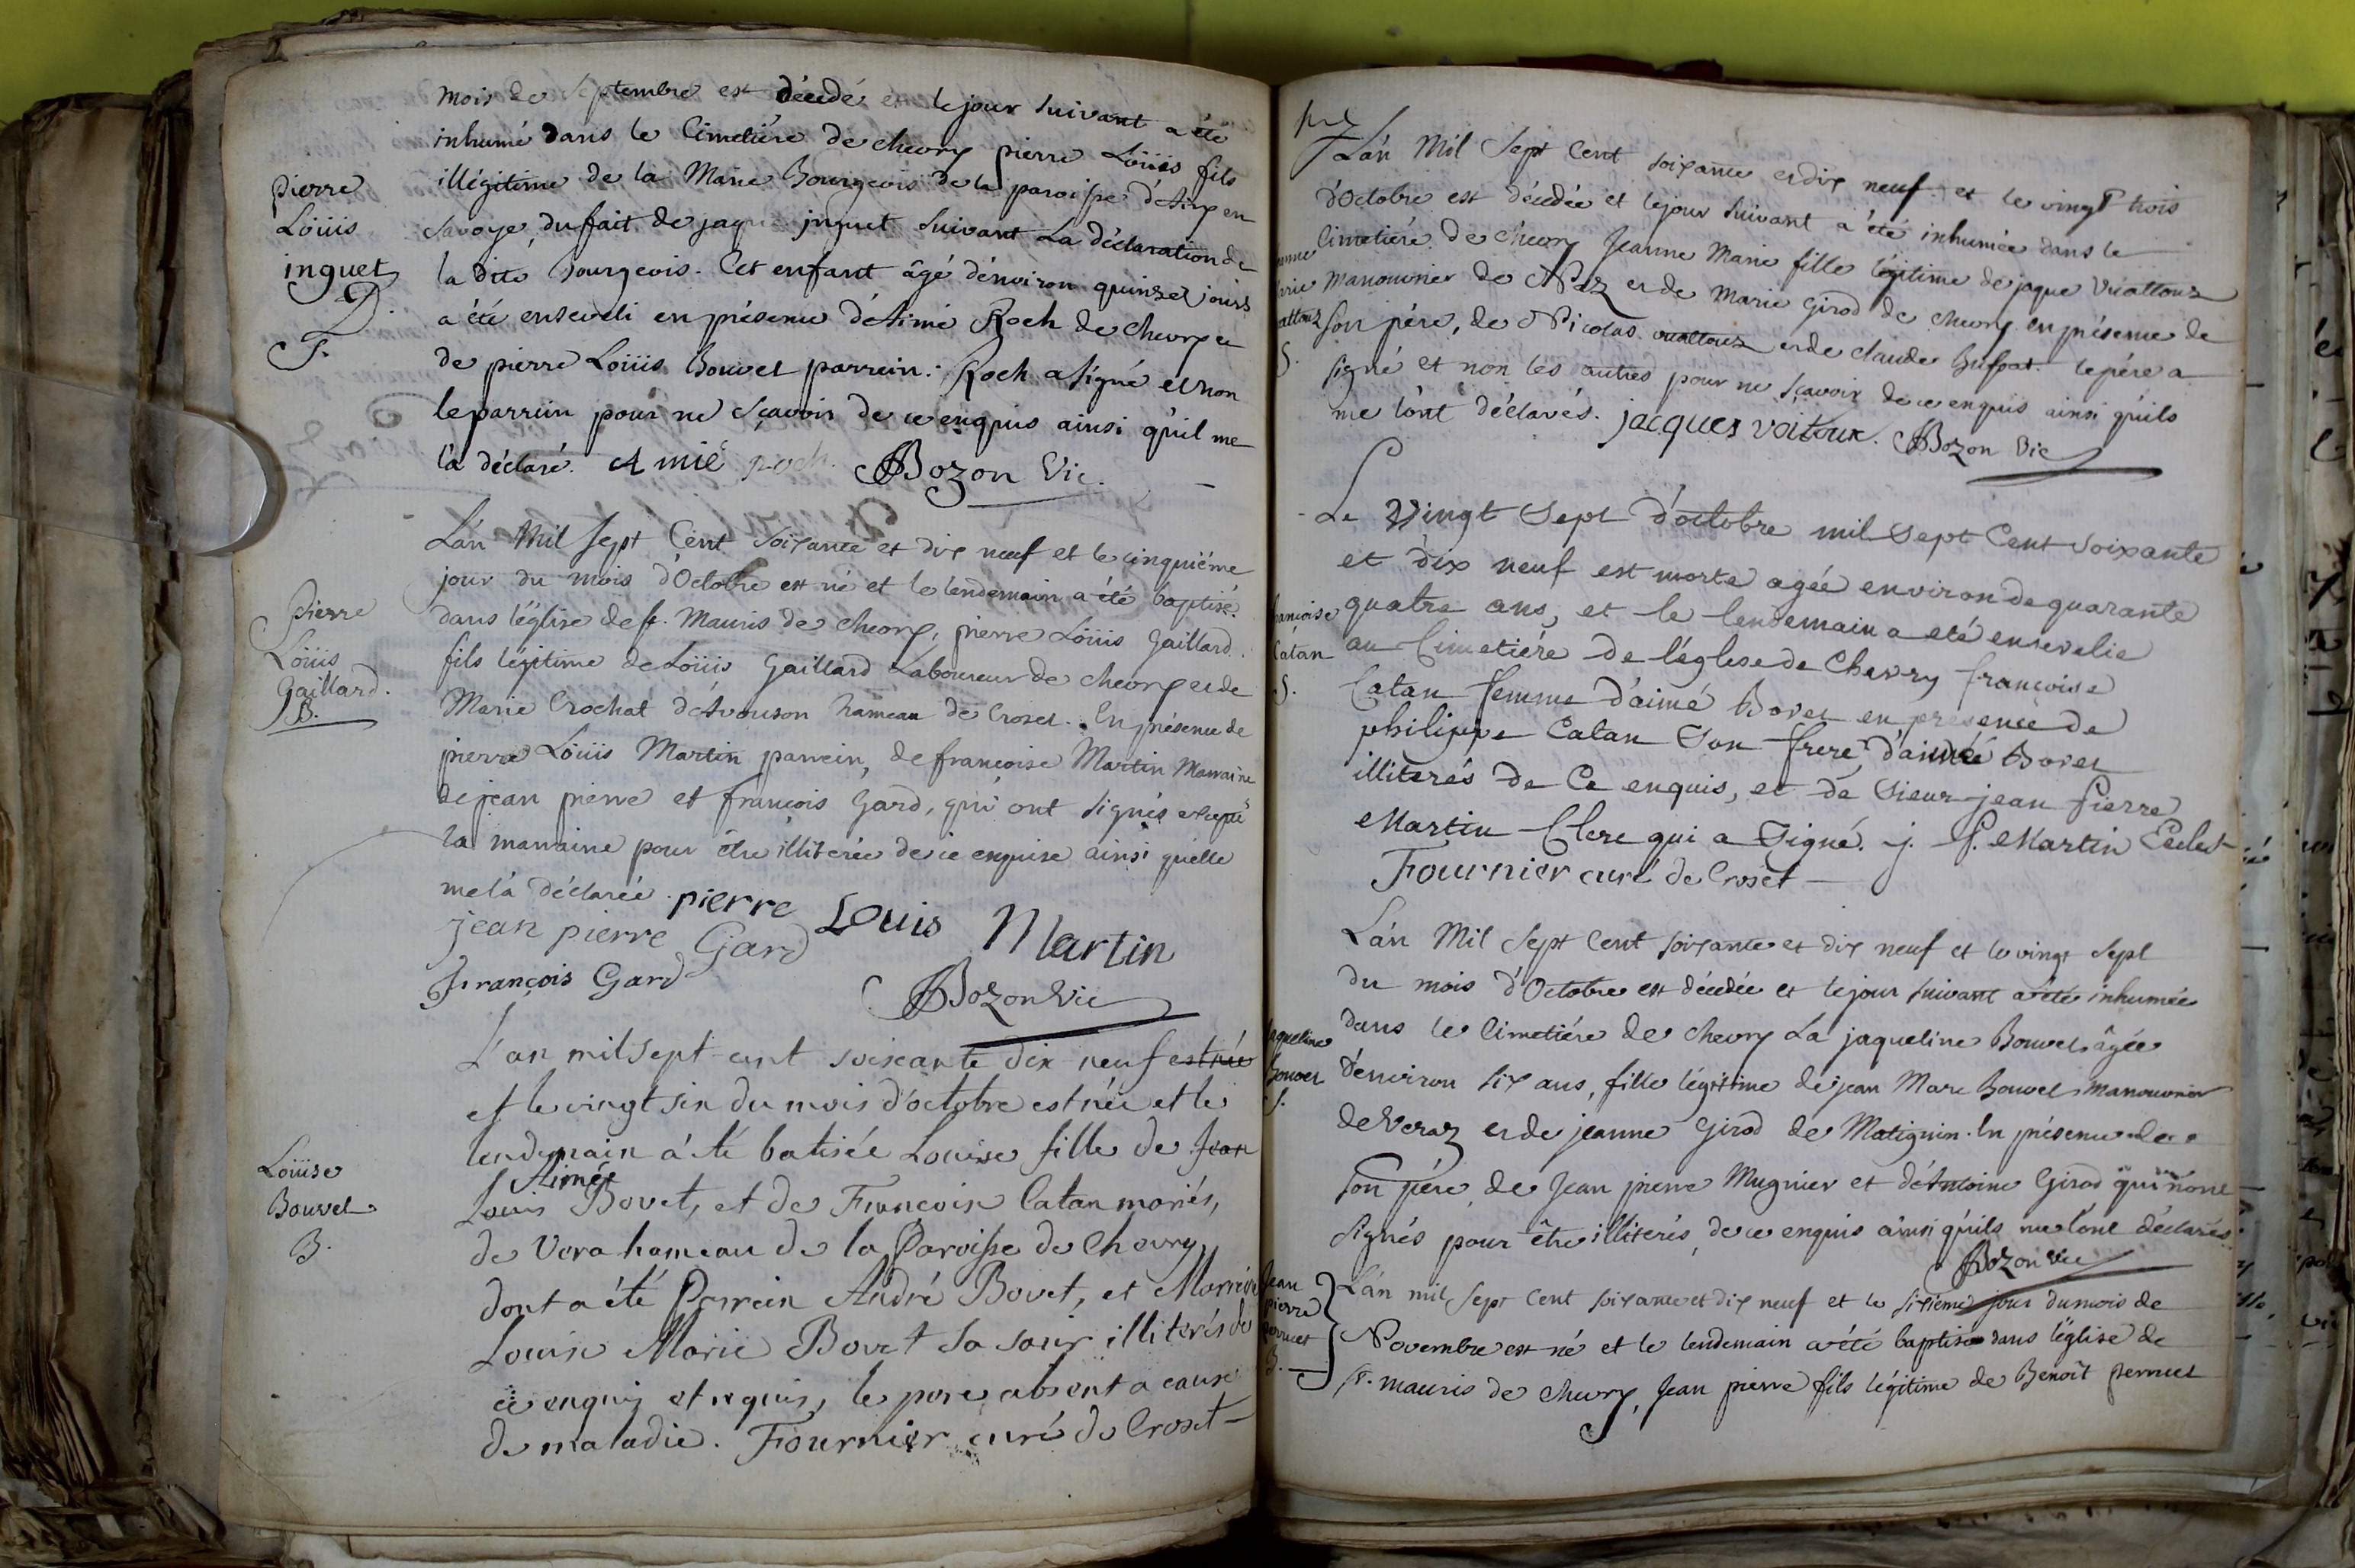 mois de Septembre est décédé et le jour suivant a été
inhumé dans le Cimetiére de chevry pierre Loüis fils
illégitime de la Marie Bourgeois de la paroisse d'
pierre
Loüis
inguet
D.
S.
Savoye, du fait de jaque inguet suivant la déclaration de
la dite Bourgeois. Cet enfant âgé d'énviron quinze jours
a été enseveli en présence d'Aimé Roch de chevry et
de pierre Loüis Bouvet parrein. Roch a signé et non
le parrein pour ne sçavoir de ce enquis ainsi qu'il me
l'a déclaré. Amié roch. Bozon Vic.
L'an Mil Sept Cent soixante et dix neuf et le cinquiéme
jour du mois d'Octobre est né et le lendemain a été baptisé
Pierre
Loüis
Gaillard.
B.
dans l'église de st. Mauris de chevry, pierre Loüis Gaillard
fils légitime de Loüis Gaillard Laboureur de chevry et de
Marie Crochat d'Avouson hameau de Croset. En présence de
pierre Loüis Martin parrein, de francoise Martin Marraine
de jean pierre et françois Gard, qui ont signés excepté
la marraine pour être illiterée de ce enquise ainsi qu'elle
me l'a déclarée. pierre Louis Martin
jean pierre Gard
françois Gard
Bozon Vic
L'an mil sept cent soixante dix neuf est née
et le vingt six du mois d'octobre est née et le
lendemain a été batisée Louise fille de Jean
Aimé
Louis Bovet, et de Francoise Catan mariés,
Loüise
Bouvet
B.
de Vera hameau de la Paroisse de Chevry,
dont a été Parrein André Bovet, et Marreine
Louise Marie Bovet sa sœur illiterés de
ce enquis et requis, le pere absent a cause
de maladie. Fournier curé de Croset
L'an Mil Sept Cent soixante et dix neuf et le vingt trois
d'Octobre est décédée et le jour suivant a été inhumée dans le
Cimetiére de chevry Jeanne Marie fille légitime de jaque Vuattoux
manouvrier de Naz et de Marie Girod de chevry en présence de
son pére, de Nicolas vuattoux et de claude Buffat. le pére a
S.
signé et non les autres pour ne sçavoir de ce enquis ainsi qu'ils
me l'ont déclarés. jacques voitoux. Bozon Vic
Le Vingt Sept d'octobre mil Sept Cent Soixante
et dix neuf est morte agée environ de quarante
quatre ans, et le lendemain a eté ensevelie
ancoise
Catan
S.
au Cimetiére de l'église de Chevry francoise
Catan femme d'aimé Bovet en presence de
philippe Catan Son frere, d'aimé Bovet
illiterés de Ce enquis, et de Sieur jean Pierre
Martin Clerc qui a Signé. j. P. Martin Eclest
Fournier curé de Croset
L'an Mil Sept Cent soixante et dix neuf et le vingt Sept
du mois d'Octobre est décédée et le jour suivant a été inhumée
dans le Cimetiére de chevry La jaqueline Bouvet âgée
aqueline
Bouvet
S.
d'énviron six ans, fille légitime de jean Marc Bouvet Manouvrier
de Veraz et de jeanne Girod de Matignin. En présence de
son pére, de Jean pierre Mugnier et d'Antoine Girod qui n'ont
signés pour être illiterés, de ce enquis ainsi qu'ils me l'ont déclarés.
Bozon Vic
Jean
pierre
perruet
B.
L'an mil Sept Cent soixante et dix neuf et le sixieme jour du mois de
Novembre est né et le lendemain a été baptisé dans l'église de
st. mauris de chevry, Jean pierre fils légitime de Benoît perruet